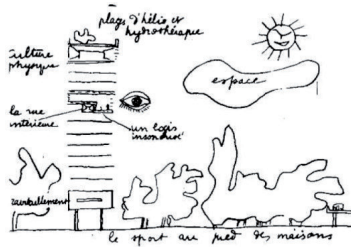 plage d'hélio et
hydrothérapie
culture
physique
espace
la rue
intérieure
un logis
insonorisé
ravitaillement
le sport au pied des maisons